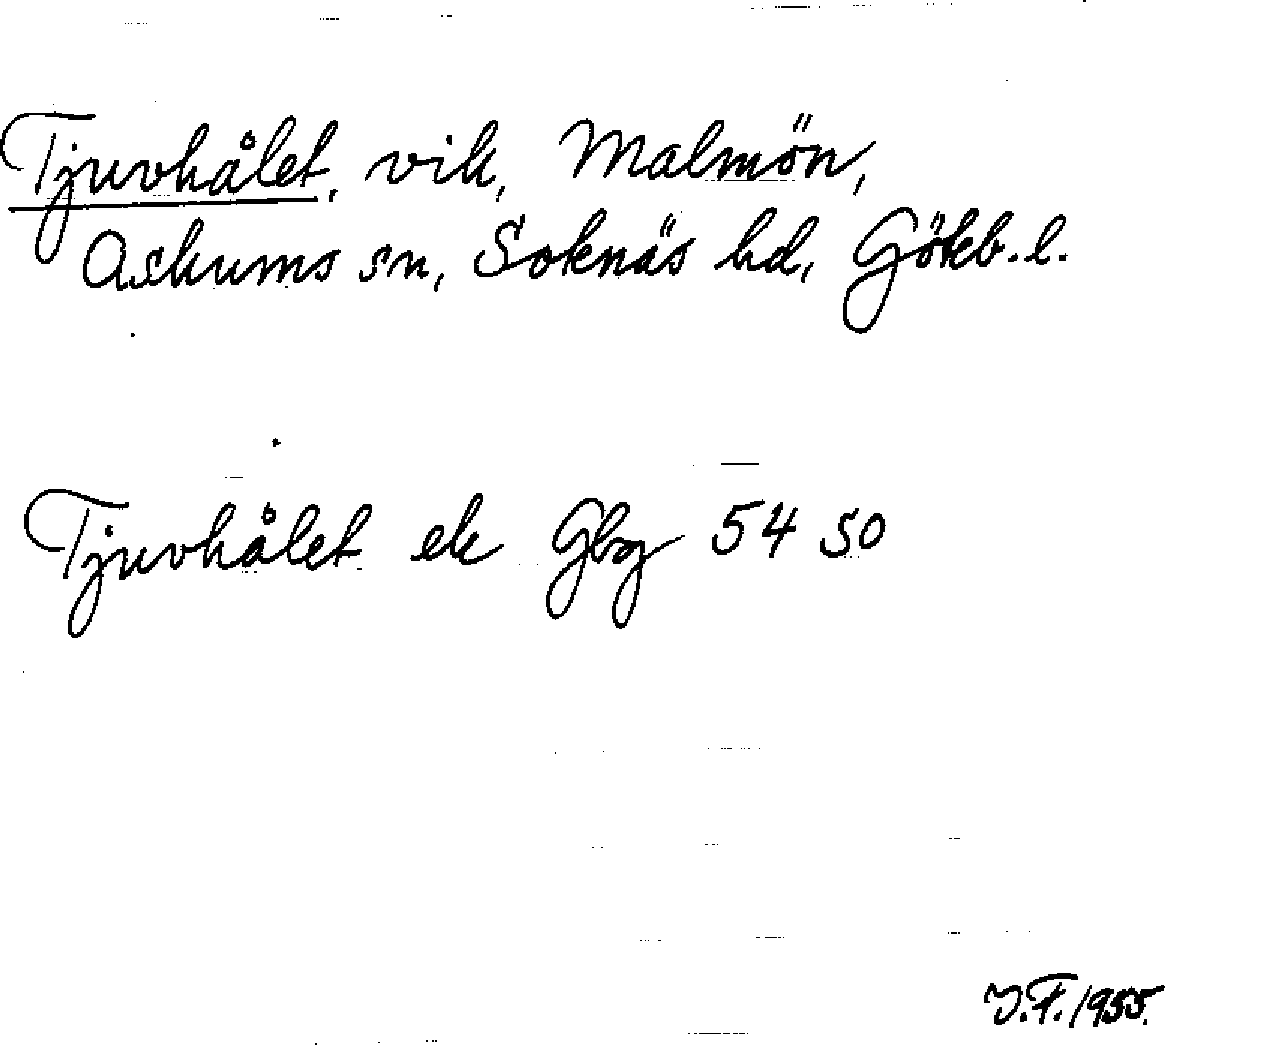 Tjuvhålet, vik, Malmön,
Askums sn, Sotenäs hd, Götebl.
Tjuvhålet ek Gbg 54 SO
J.F. 1955.